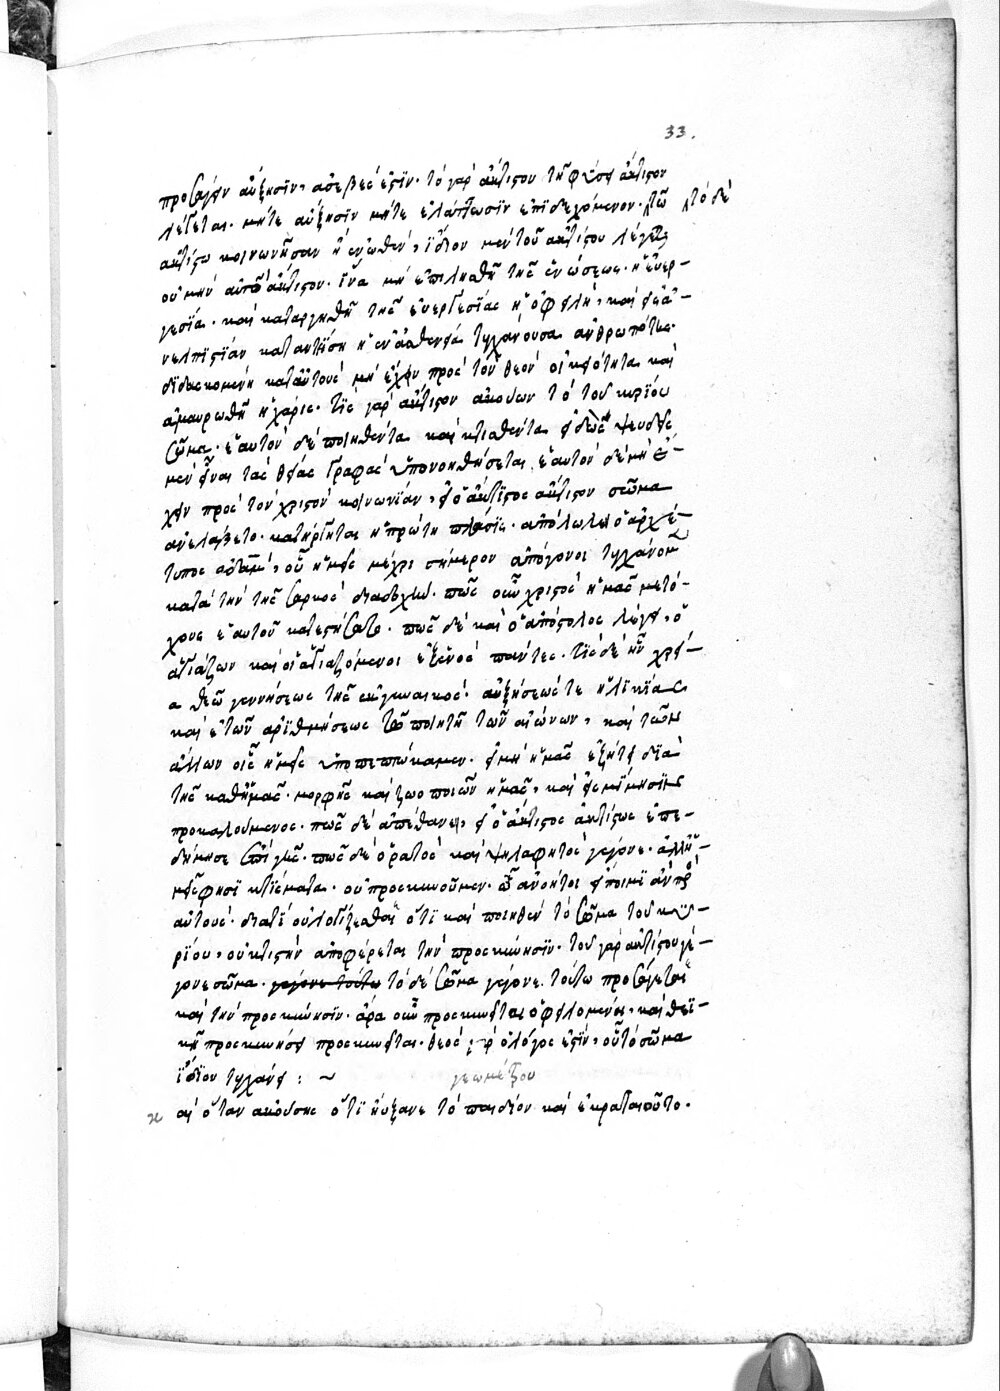 33.
προσάγειν αὔξησϊν, ἀσεβές ἐστϊν· τὸ γὰρ ἄκτιστον τῆ φύσει ἄκτιστον
λέγεται· μήτε αὔξησϊν μήτε ἐλάττωσϊν ἐπϊδεχόμενον· τῶ τὸ δὲ
ἀκτίστω κοινωνῆσαν ἢ ἑνωθὲν, ἴδϊον μὲν τοῦ ἀκτίστου λέγεται
οὐ μὴν αὐτὸ ἄκτιστον· ἵνα μὴ ἐπιλησθῆ τῆς ἑνώσεως· ἡ εὐερ-
γεσία· καὶ καταργηθῆ τῆς εὐεργεσϊας ἡ ὀφειλὴ, καὶ εἰς ἀ-
νελπϊστϊαν καταντήση ἡ ἐν ἀσθενεία τυγχάνουσα ἀνθρωπότης·
δϊδασκομένη κατ' αὐτοὺς μὴ ἔχειν πρὸς τὸν θεὸν οἰκειότητα καὶ
ἀμαυρωθῆ ἡ χάρις· τίς γὰρ ἄκτιστον ἀκούων τὸ τοῦ κυρϊου
σῶμα· ἑαυτὸν δὲ ποιηθέντα καὶ κτισθέντα εἰδὼς ψευδεῖς
μὲν εἶναι τὰς θείας γραφὰς ὑπονοηθήσεται ἑαυτὸν δὲ μὴ ἔ-
χειν πρὸς τὸν χριστὸν κοινωνϊαν, εἰ ὁ ἄκτϊστος ἄκτιστον σῶμα
ἀνελάβετο· κατήργηται ἡ πρώτη πλάσϊς· ἀπόλωλεν ὁ ἀρχέ-
τυπος ἀδὰμ, οὗ ἡμεῖς μέχρι σήμερον ἀπόγονοι τυγχάνομεν
κατὰ τὴν τῆς σαρκὸς διαδοχὴν· πῶς οὖν χριστὸς ἡμᾶς μετό-
χους ἑαυτοῦ κατεστήσατο· πῶς δὲ καὶ ὁ ἀπόστολος λέγει, ὁ
ἁγιάζων καὶ οἱ ἁγιαζόμενοι ἐξ ἑνὸς πάντες· τίς δὲ ἦν χρεί-
α θεῶ γεννήσεως τῆς ἐκ γυναικὸς· αὐξήσεώς τε ἡλϊκϊας
καὶ ἐτῶν ἀρϊθμήσεως τῶ ποιητῆ τῶν αἰώνων, καὶ τῶν
ἄλλων οἷς ἡμεῖς ὑποπεπτώκαμεν· εἰ μὴ ἡμᾶς ἐζήτει διὰ
τῆς καθ' ἡμᾶς μορφῆς καὶ ζωοποιῶν ἡμᾶς, καὶ εἰς μϊμησϊν
προκαλούμενος· πῶς δὲ ἀπέθανεν, εἰ ὁ ἄκτιστος ἀκτίστως ἐπε-
δήμησε τοῖς γῆς· πῶς δὲ ὁρατὸς καὶ ψηλαφητὸς γέγονε· ἀλλ' ἡ-
μεῖς φησϊ κτϊσματα· οὐ προσκυνοῦμεν· ὦ ἀνόητοι εἴποιμϊ ἂν πρὸς
αὐτοὺς· διατϊ οὐ λογίζεσθαι ὅτϊ καὶ ποιηθὲν τὸ σῶμα τοῦ κυ-
ρϊου, οὐ κτιστὴν ἀποφέρεται τὴν προσκύνησϊν· τοῦ γὰρ ἀκτίστου γέ-
γονε σῶμα· γέγονε τούτω τὸ δὲ σῶμα γέγονε τούτω προσάγεται
καὶ τὴν προσκύνησϊν· ἄρα οὖν προσκυνεῖται ὀφειλομένως, καὶ θεϊ-
κῆ προσκυνήσει προσκυνεῖται· θεὸς γὰρ ὁ λόγος ἐστϊν, οὗ τὸ σῶμα
ἴδϊον τυγχάνει : ~ γεωμέτρου
κ αὶ ὅταν ἀκούσης ὅτϊ ηὔξανε τὸ παιδϊον καὶ ἐκραταιοῦτο·